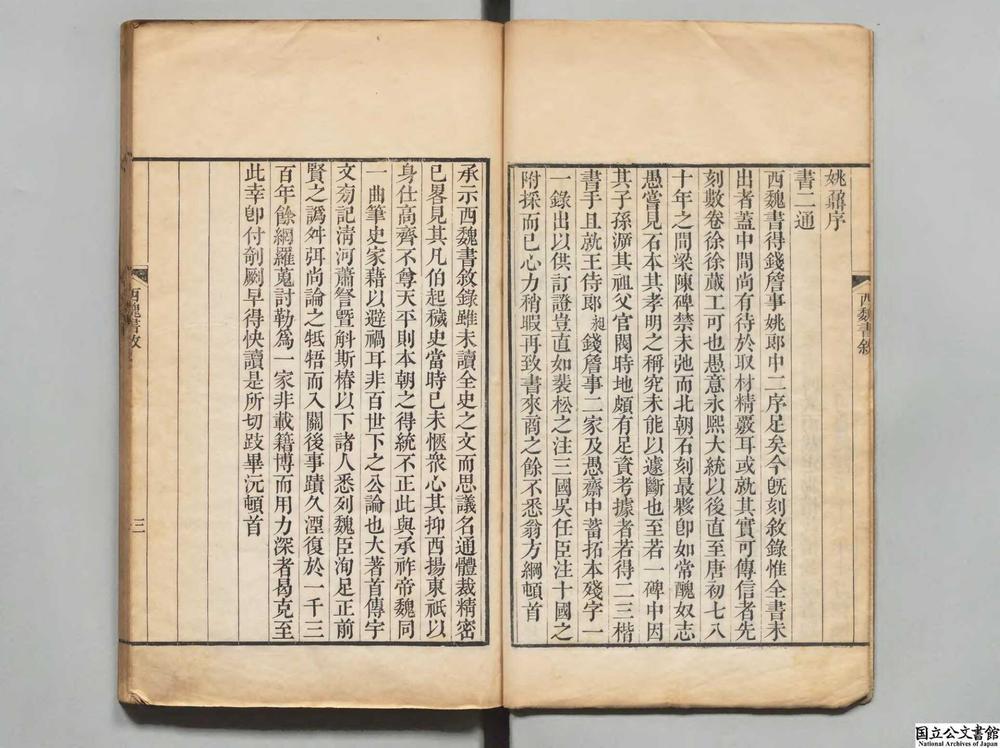 姚鼐序
書二通
西魏書得錢詹事姚郎中二序足矣今旣刻敘錄惟全書未
出者蓋中間尚有待於取材精覈耳或就其實可傳信者先
刻數卷徐徐蕆工可也愚意永熙大統以後直至唐初七八
十年之間梁陳碑禁未弛而北朝石刻最夥卽如常醜奴志
愚嘗見石本其孝明之稱究未能以遽斷也至若一碑中因
其子孫溯其祖父官閥時地頗有足資考據者若得二三楷
書手且就王侍郎昶錢詹事二家及愚齋中蓄拓本殘字一
一錄出以供訂證豈直如裴松之注三國吳任臣注十國之
附採而已心力稍暇再致書來商之餘不悉翁方綱頓首
西魏書敘
承示西魏書敘錄雖未讀全史之文而思議名通體裁精密
已畧見其凡伯起穢史當時已未愜衆心其抑西揚東祇以
身仕高齊不尊天平則本朝之得統不正此與承祚帝魏同
一曲筆史家藉以避禍耳非百世下之公論也大著首傳宇
文刱記清河蕭詧暨斛斯椿以下諸人悉列魏臣洵足正前
賢之譌舛弭尚論之牴牾而入關後事蹟久湮復於一千三
百年餘綱羅蒐討勒爲一家非載籍博而用力深者曷克至
此幸卽付剞劂早得快讀是所切跂畢沅頓首
西魏書敘
三
国立公文書館
National Archives of Japan